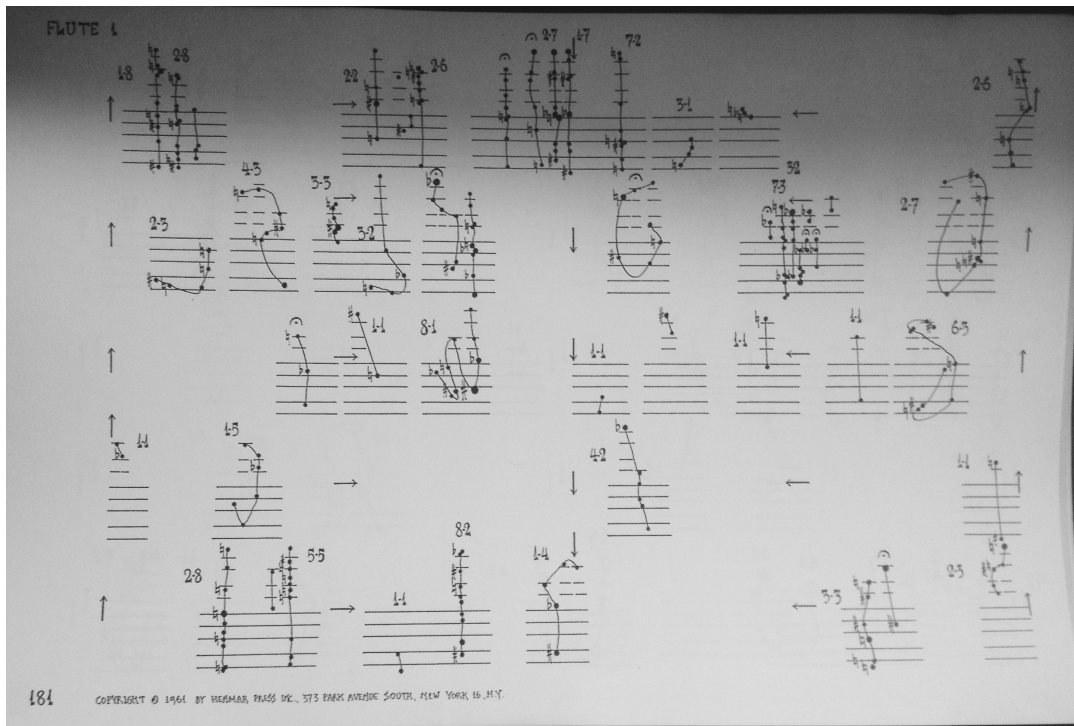 FLUTE 1
1-8 2-8 2-2 2-6 2-7 1-7 7-2 3-1 2-6
2-3 4-3 3-3 3-2 7-3 3-2 2-7
1-1 8-1 1-1 1-1 1-1 6-3
1-1 1-5 4-2 1-1
2-8 5-5 1-1 8-2 1-4 3-3 2-3
181 COPYRIGHT © 1961 BY HENMAR PRESS INC., 373 PARK AVENUE SOUTH, NEW YORK 16, N.Y.